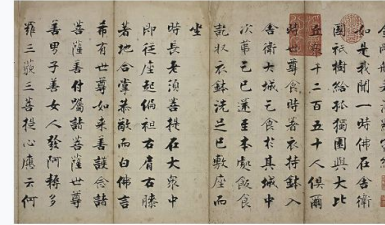 如是我聞一時佛在舍衛
國祇樹給孤獨園與大比
丘眾千二百五十人俱爾
時世尊食時著衣持鉢入
舍衛大城乞食於其城中
次第乞已還至本處飯食
訖收衣鉢洗足已敷座而
坐
時長老須菩提在大眾中
即從座起偏袒右肩右膝
著地合掌恭敬而白佛言
希有世尊如來善護念諸
菩薩善付囑諸菩薩世尊
善男子善女人發阿耨多
羅三藐三菩提心應云何